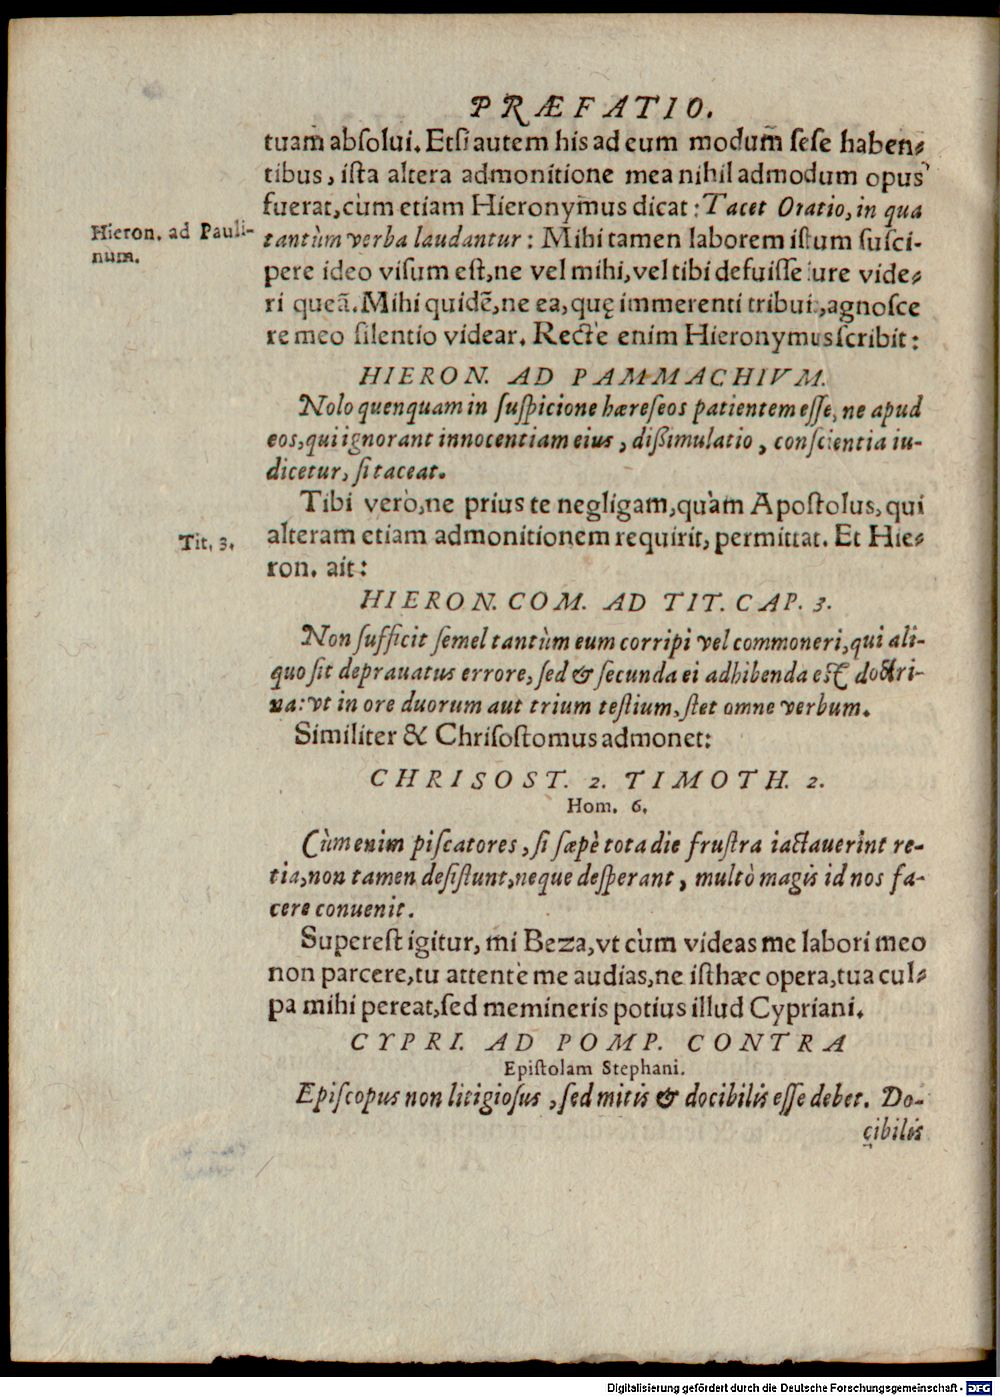 PRÆFATIO.
tuam absolui. Etsi autem his ad eum modum̃ sese haben⸗
tibus, ista altera admonitione mea nihil admodum opus
fuerat, cùm etiam Hieronymus dicat: Tacet Oratio, in qua
Hieron. ad Pauli-
num.
tantùm verba laudantur: Mihi tamen laborem istum susci-
pere ideo visum est, ne vel mihi, vel tibi defuisse iure vide⸗
ri queã. Mihi quidẽ, ne ea, quę immerenti tribui, agnosce
re meo silentio videar. Rectè enim Hieronymus scribit:
HIERON. AD PAMMACHIVM.
Nolo quenquam in suspicione hæreseos patientem esse, ne apud
eos, qui ignorant innocentiam eius, dißimulatio, conscientia iu-
dicetur, si taceat.
Tibi verò, ne prius te negligam, quàm Apostolus, qui
Tit. 3.
alteram etiam admonitionem requirit, permittat. Et Hie⸗
ron. ait:
HIERON. COM. AD TIT. CAP. 3.
Non sufficit semel tantùm eum corripi vel commoneri, qui ali-
quo sit deprauatus errore, sed & secunda ei adhibenda est doctri-
na: vt in ore duorum aut trium testium, stet omne verbum.
Similiter & Chrisostomus admonet:
CHRISOST. 2. TIMOTH. 2.
Hom. 6.
Cùm enim piscatores, si sæpè tota die frustra iactauerint re-
tia, non tamen desistunt, neque desperant, multò magis id nos fa-
cere conuenit.
Superest igitur, mi Beza, vt cùm videas me labori meo
non parcere, tu attentè me audias, ne isthæc opera, tua cul⸗
pa mihi pereat, sed memineris potius illud Cypriani.
CYPRI. AD POMP. CONTRA
Epistolam Stephani.
Episcopus non litigiosus, sed mitis & docibilis esse debet. Do-
cibilis
Digitalisierung gefördert durch die Deutsche Forschungsgemeinschaft - DFG